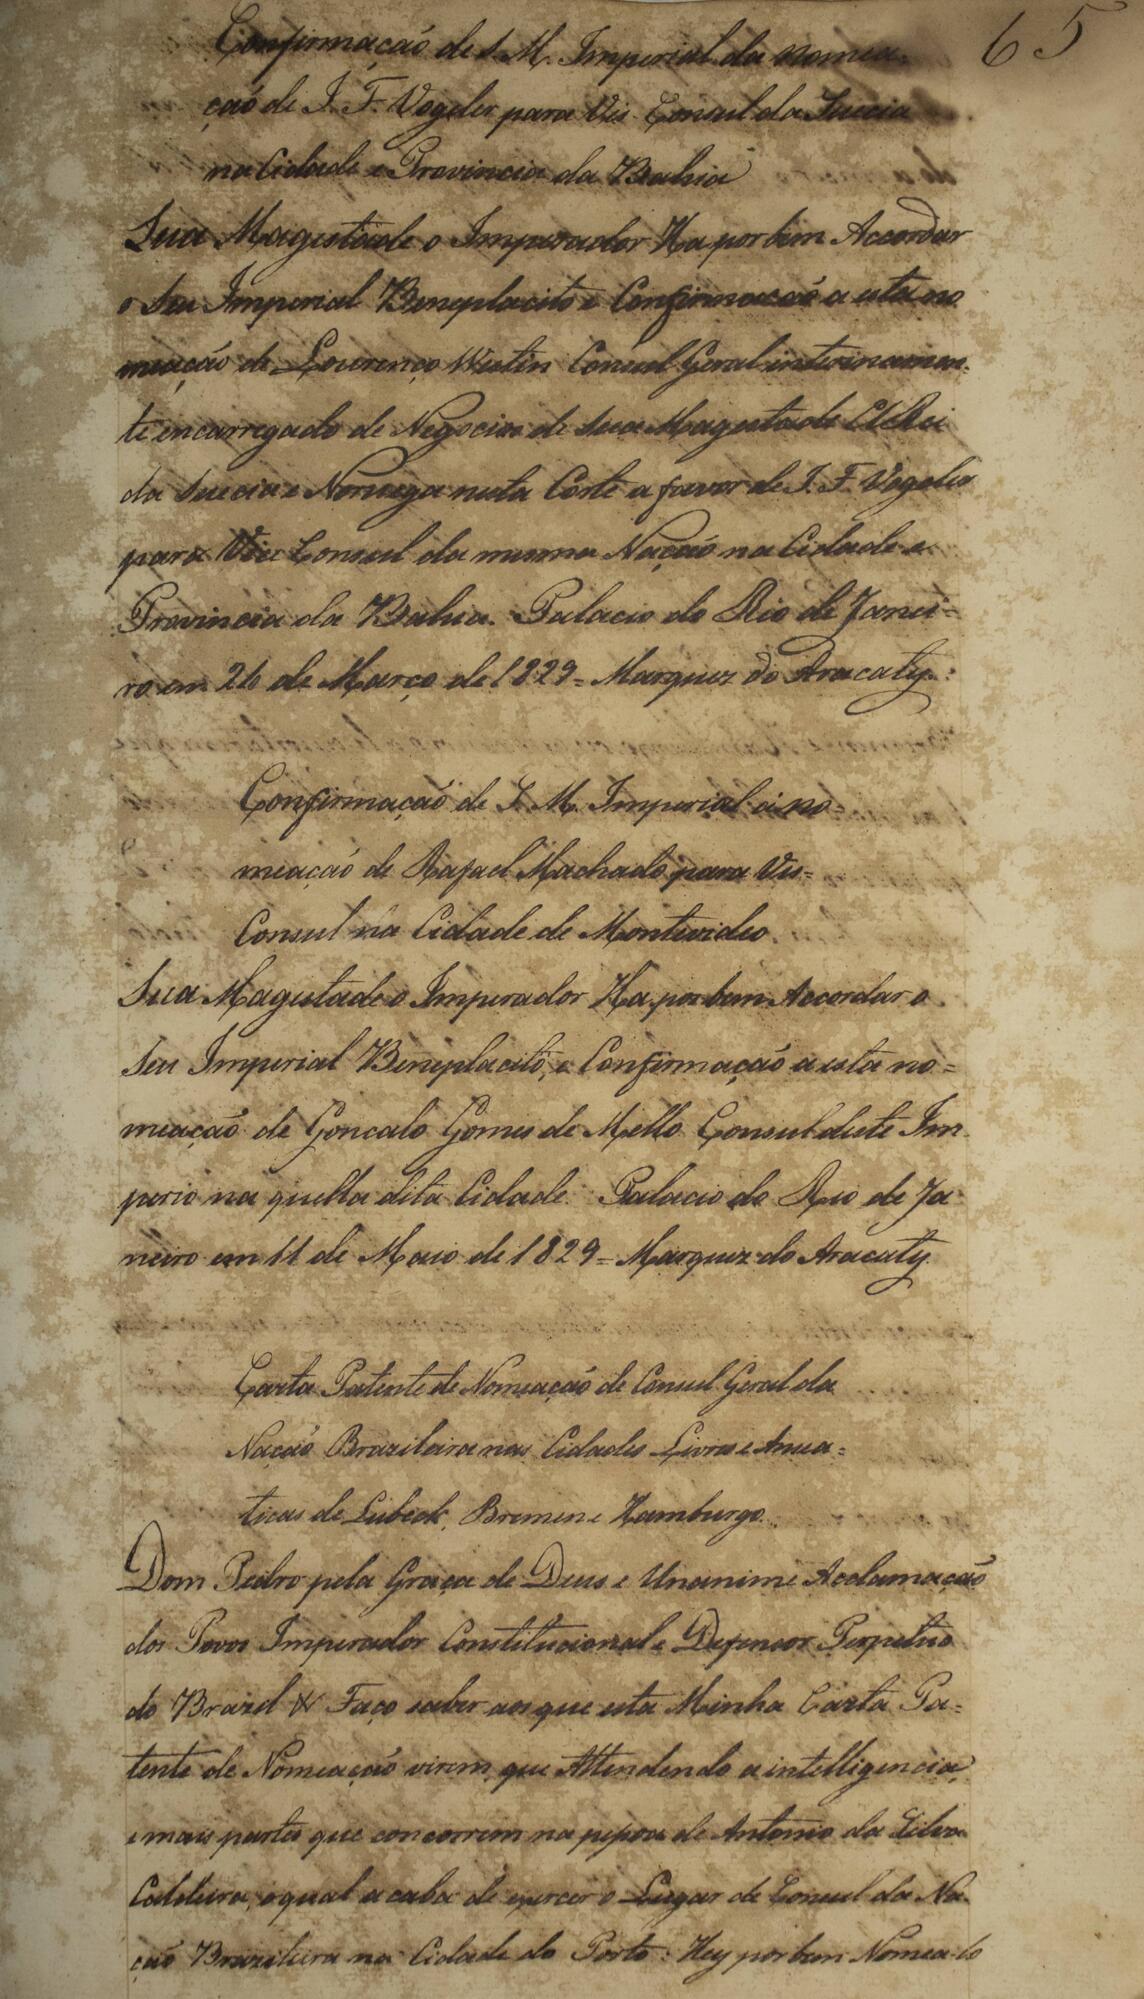 65
Confirmação de S. M. Imperial da nomea-
ção de J. F. Vogeler para Vis-Consul da Suecia
na Cidade e Provincia da Bahia
Sua Magestade o Imperador Ha por bem Accordar
o Seu Imperial Beneplacito e Confirmação a esta no
meação de Lourenço Westin Consul Geral interinamen-
te encarregado de Negocios de Sua Magestade ElRei
da Suecia e Noruega nesta Corte a favor de J. F. Vogeler
para Vice Consul da mesma Nação na Cidade e
Provincia da Bahia. Palacio do Rio de Janei=
ro em 26 de Março de 1829= Marquez do Aracaty.
Confirmação de S. M. Imperial á no=
meação de Rafael Machado para Vis=
Consul na Cidade de Montevideo.
Sua Magestade o Imperador Ha por bem Accordar o
Seu Imperial Beneplacito, e Confirmação a esta no=
meação de Goncalo Gomes de Mello Consul deste Im-
perio na quella dita Cidade. Palacio do Rio de Ja
neiro em 11 de Maio de 1829= Marquez do Aracaty.
Carta Patente de Nomeação de Consul Geral da
Nação Brazileira nas Cidades Livres e Ansea=
ticas de Lubeck, Bremen e Hamburgo.
Dom Pedro pela Graça de Deus e Unanime Acclamação
dos Povos Imperador Constitucional e Defensor Perpetuo
do Brazil & Faço saber aos que esta Minha Carta Pa=
tente de Nomeação virem, que Attendendo a intelligencia,
e mais partes que concorrem na pessoa de Antonio da Silva
Caldeira, o qual acaba de exercer o Lugar de Consul da Na-
ção Brazileira na Cidade do Porto: Hey por bem Nomea-lo